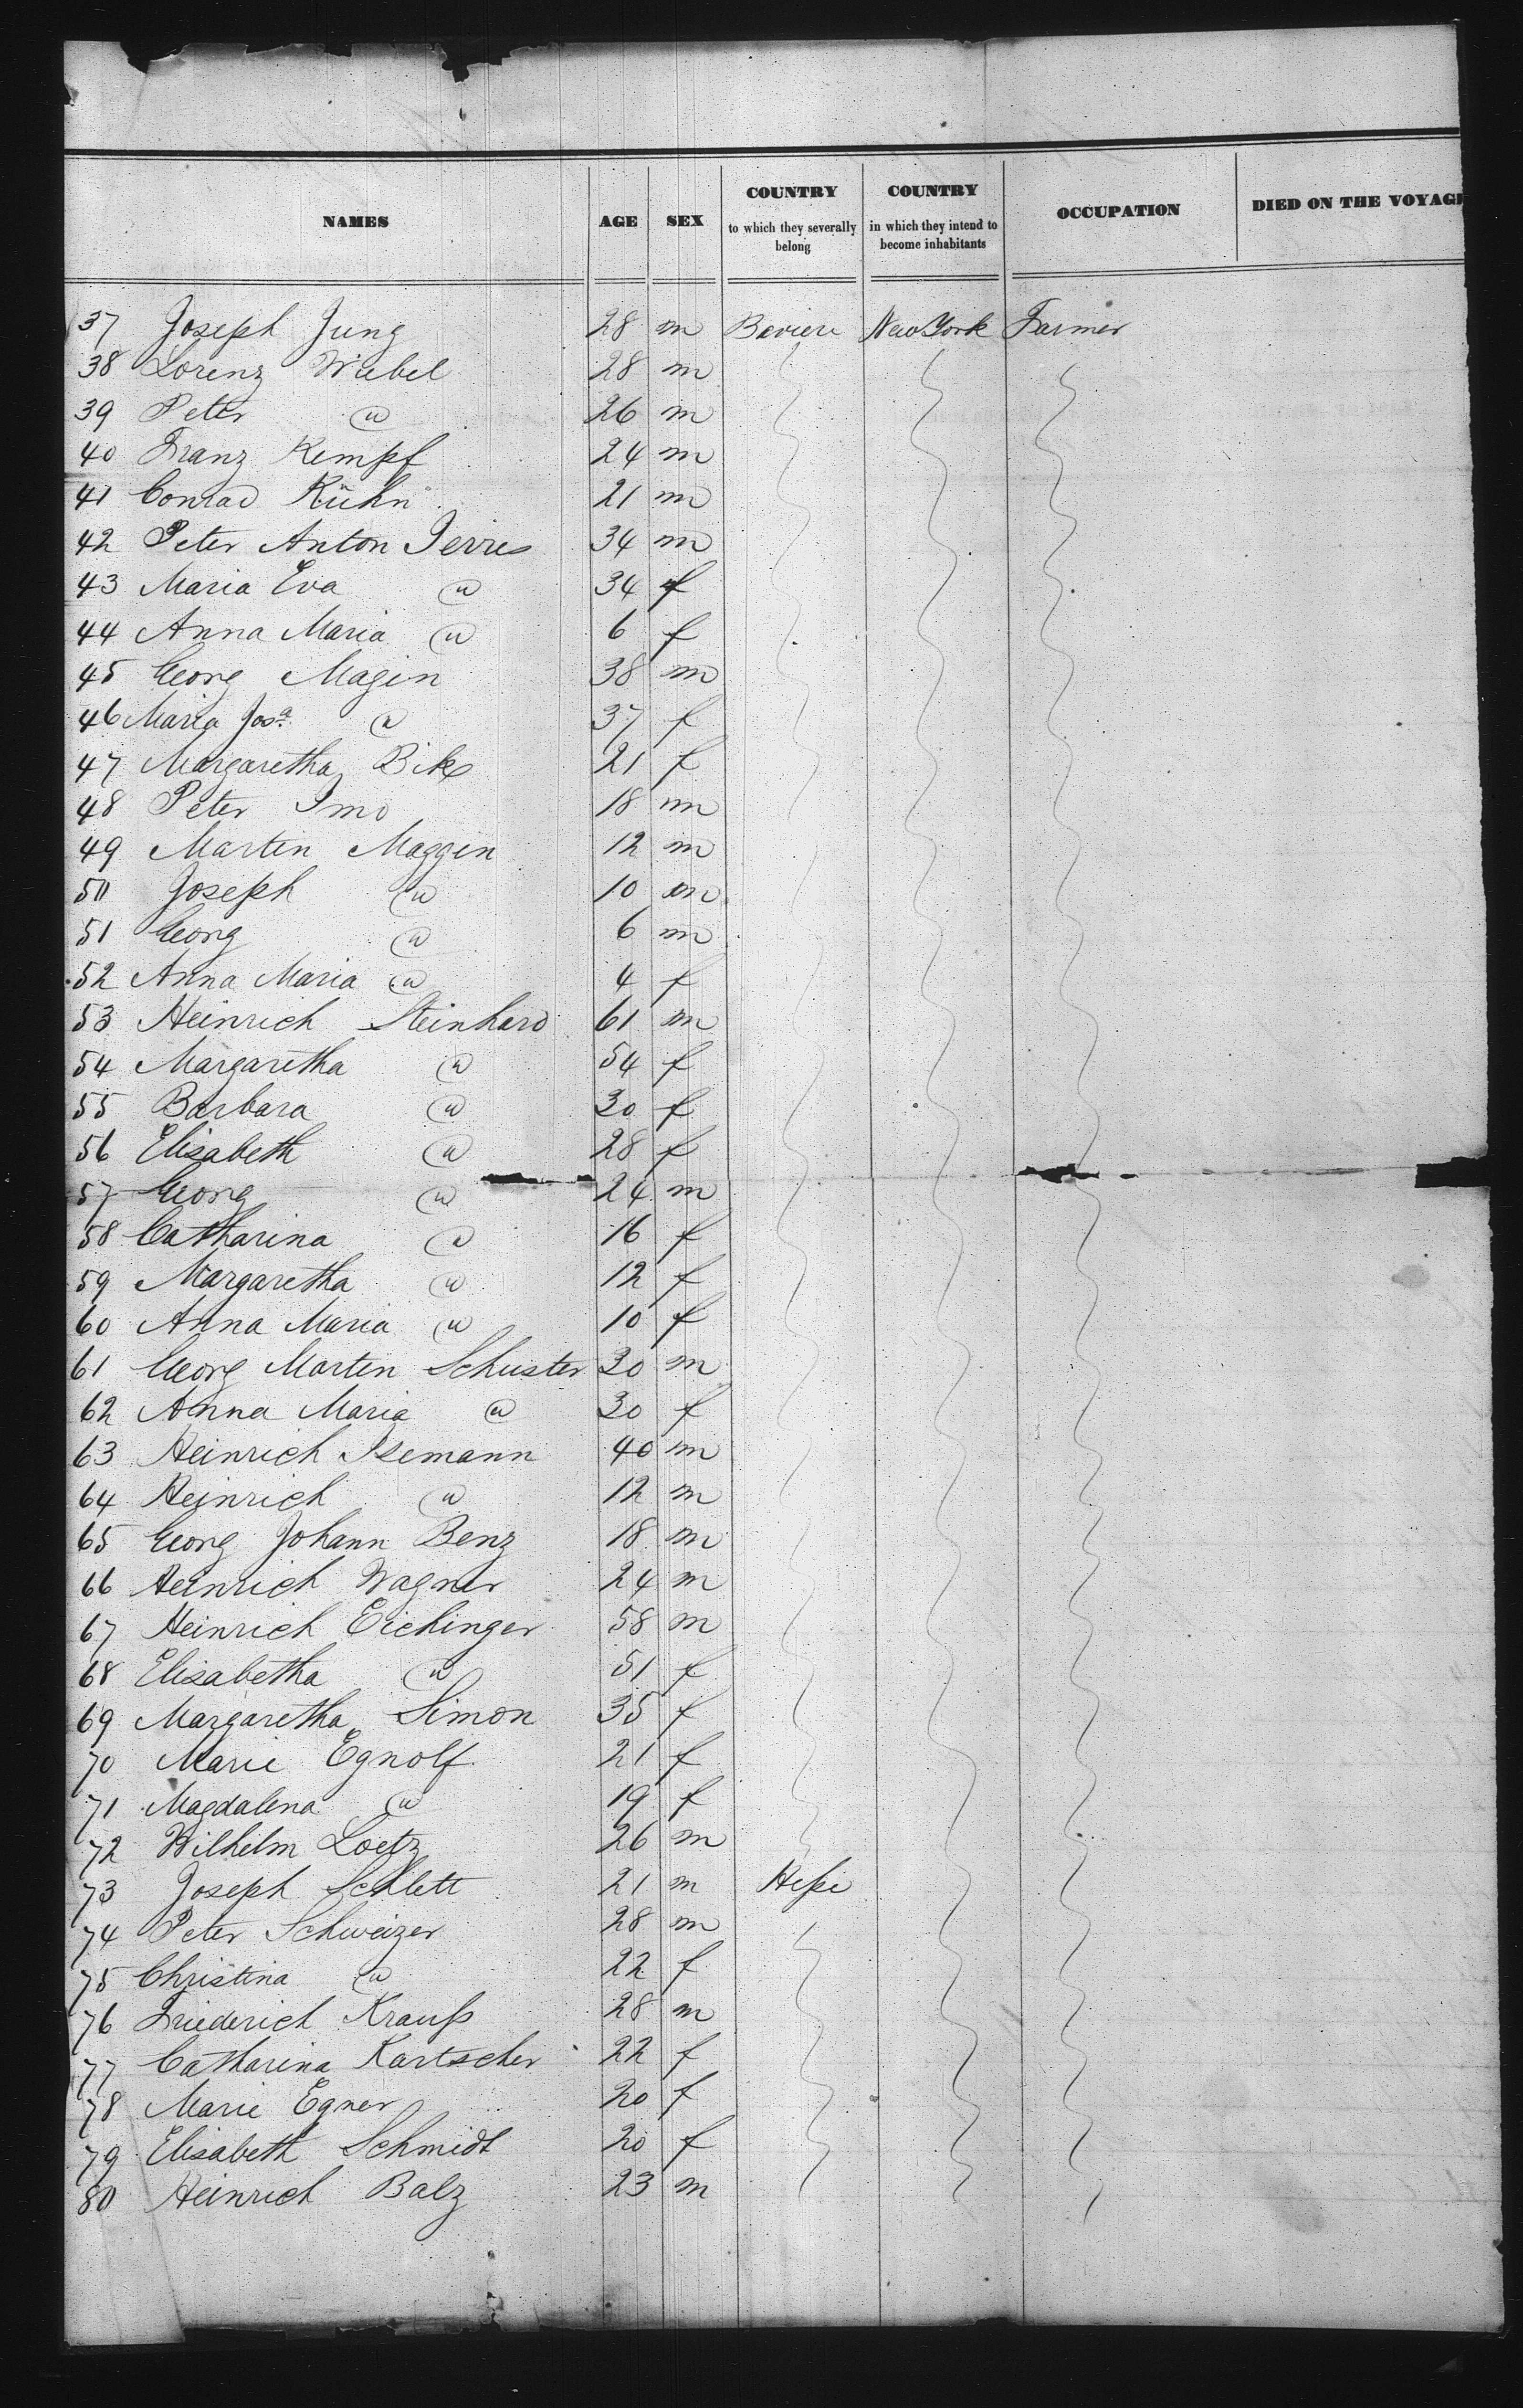 NAMES AGE SEX COUNTRY to which they severally belong COUNTRY in which they intend to become inhabitants OCCUPATION DIED ON THE VOYAG
37 Joseph Jung 28 m Baviere New York Farmer
38 Lorenz Wabel 28 m
39 Peter @ 26 m
40 Franz Kempf 24 m
41 Conrad Kühn 21 m
42 Peter Anton Jerres 34 m
43 Maria Eva @ 34 f
44 Anna Maria @ 6 f
45 Georg Magin 38 m
46 Maria Josa @ 37 f
47 Margaretha 21 f
48 Peter Imo 18 m
49 Martin Maggin 12 m
50 Joseph @ 10 m
51 Georg @ 6 m
52 Anna Maria @ 4 f
53 Heinrich Steinhard 61 m
54 Margaretha @ 54 f
55 Barbara @ 30 f
56 Elisabeth @ 28 f
57 Georg @ 24 m
58 Catharina @ 16 f
59 Margaretha @ 12 f
60 Anna Maria @ 10 f
61 Georg Martin Schuster 30 m
62 Anna Maria @ 30 f
63 Heinrich Isemann 40 m
64 Heinrich @ 12 m
65 Georg Johann Benz 18 m
66 Heinrich Wagner 24 m
67 Heinrich Eichinger 58 m
68 Elisabetha @ 51 f
69 Margaretha Simon 35 f
70 Marie Egnolf 21 f
71 Magdalena @ 19 f
72 Wilhelm Loetz 26 m
73 Joseph Schlett 21 m Heße
74 Peter Schweizer 28 m
75 Christina @ 22 f
76 Friederich Krauß 28 m
77 Catharina Kartscher 22 f
78 Marie Egner 20 f
79 Elisabeth Schmidt 20 f
80 Heinrich Balz 23 m